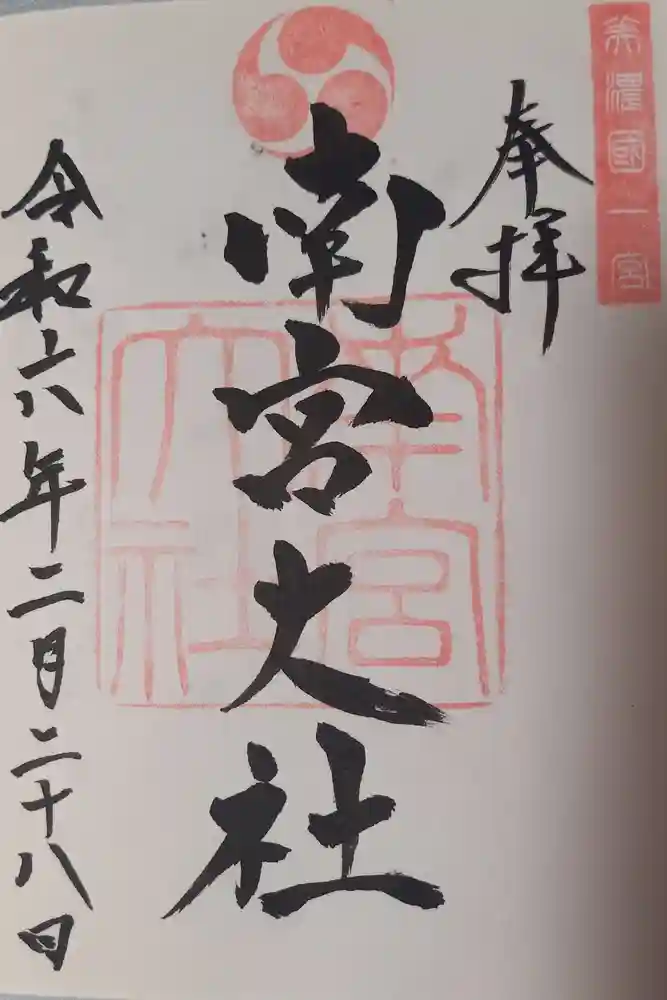 美濃國一宮
奉拝
南宮大社
南宮大社
令和六年二月二十八日